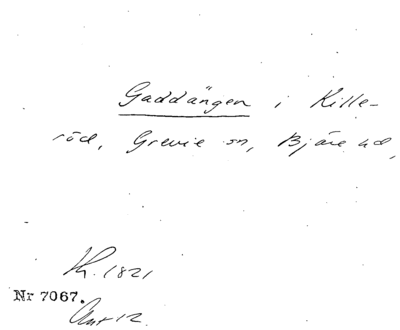 Gaddängen i Kille-
röd, Grevie sn, Bjäre hd,
Kh. 1821
Nr 7067.
Ant 12.